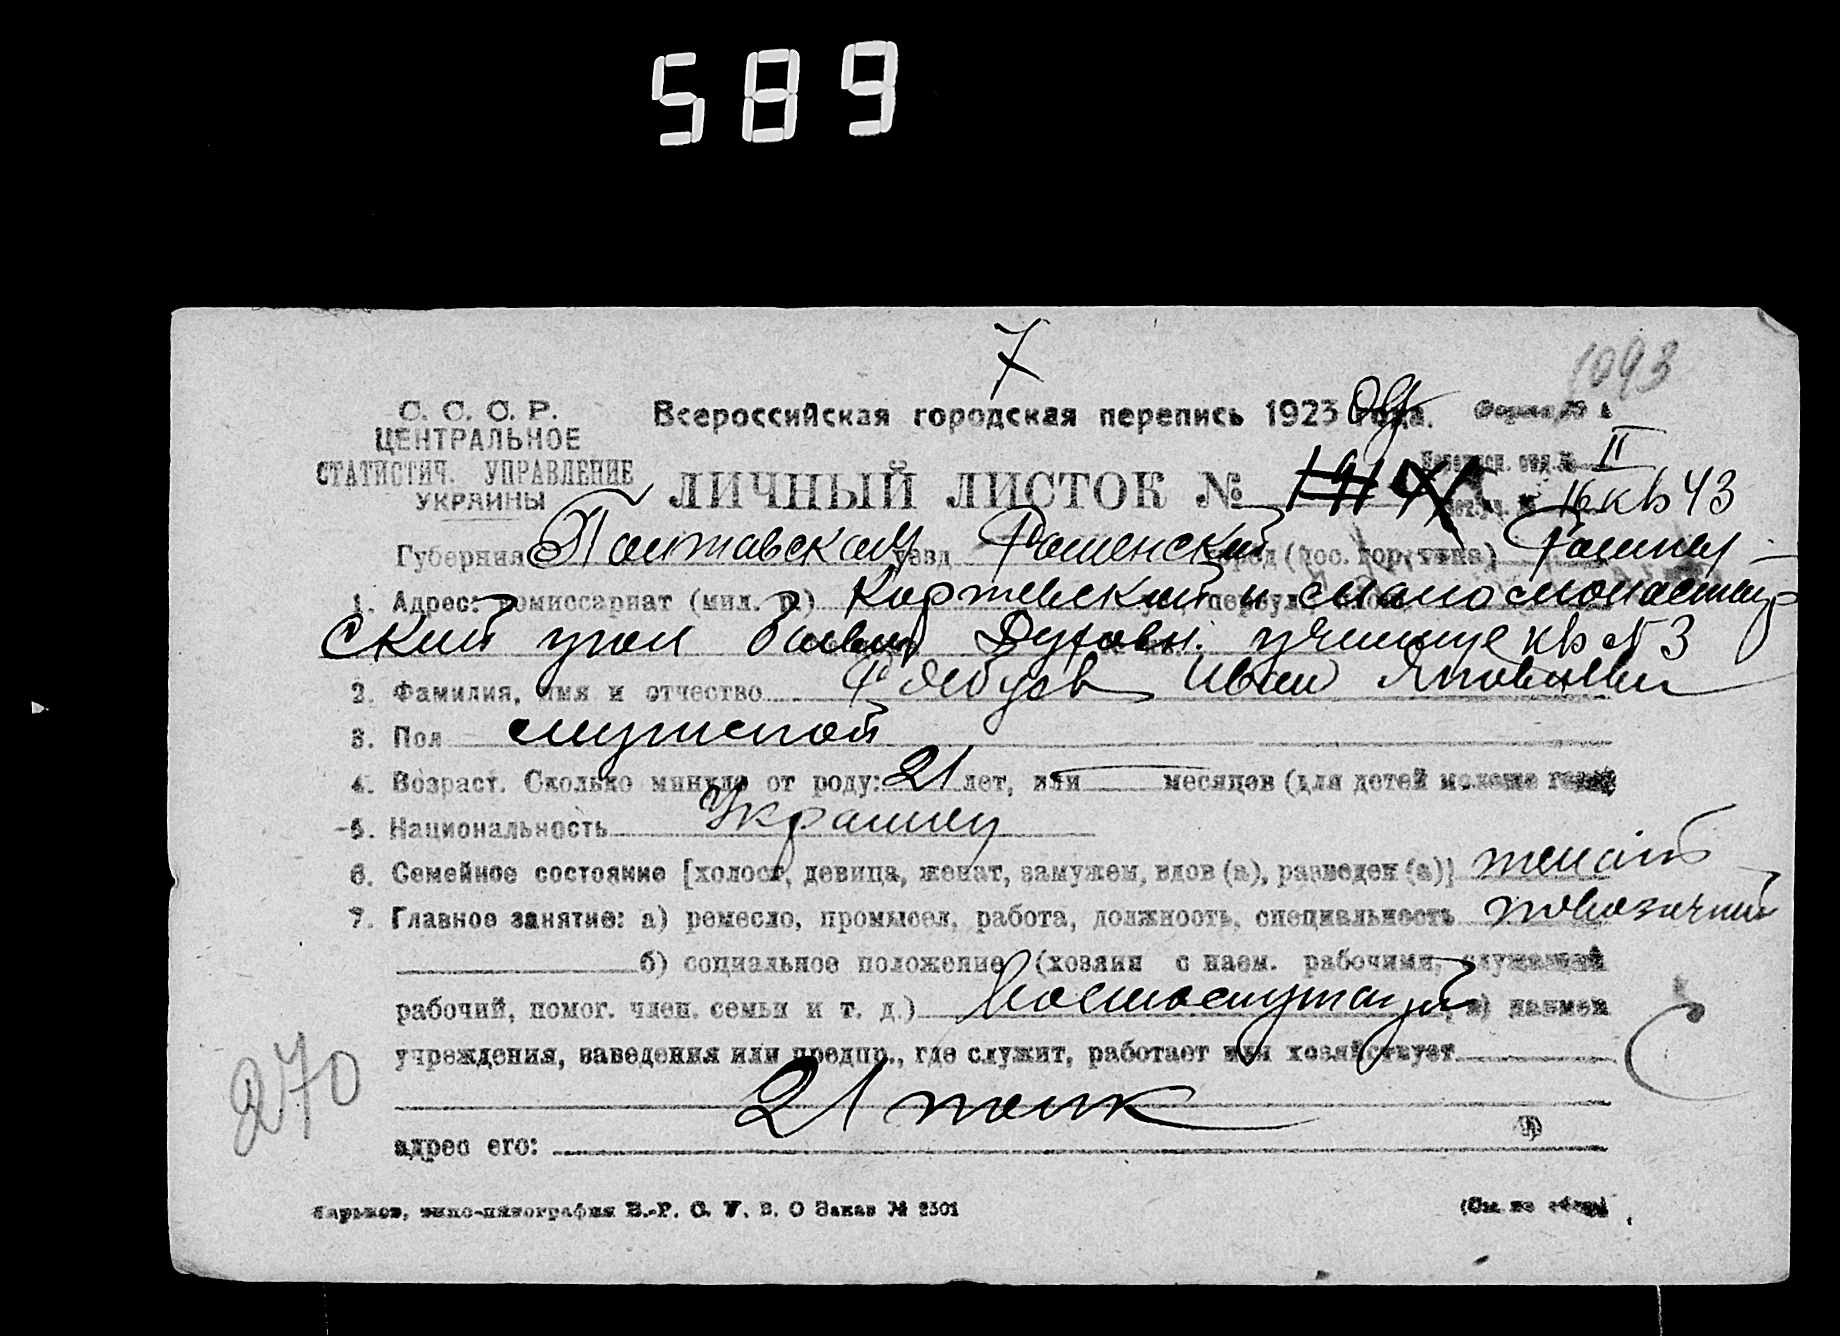 589
7
1093
С. С. С. Р.
ЦЕНТРАЛЬНОЕ
СТАТИСТИЧ. УПРАВЛЕНИЕ
УКРАИНЫ
Всероссийская городская перепись 1923 года.
II
ЛИЧНЫЙ ЛИСТОК №
16 кв 43
Губерния Полтавская уезд Роменский город (пос. гор. типа) Ромны
1. Адрес: комиссариат (мил. р.) Коржевский и
ский угол Духовн. училище кв № 3
2. Фамилия, имя и отчество Иван Яковлевич
3. Пол мужской
4. Возраст. Сколько минуло от роду: 21 лет, или — месяцев (для детей моложе года)
5. Национальность Украинец
6. Семейное состояние [холост, девица, женат, замужем, вдов (а), разведен (а)] женат
7. Главное занятие: а) ремесло, промысел, работа, должность, специальность повозочный
б) социальное положение (хозяин с наем. рабочими, служащий
рабочий, помог. член. семьи и т. д.) Военнослужащий, в) наимен
учреждения, заведения или предпр., где служит, работает или хозяйствует
21 полк
270
адрес его:
Харьков, В. О Заказ № 2301
(См. на обор.)